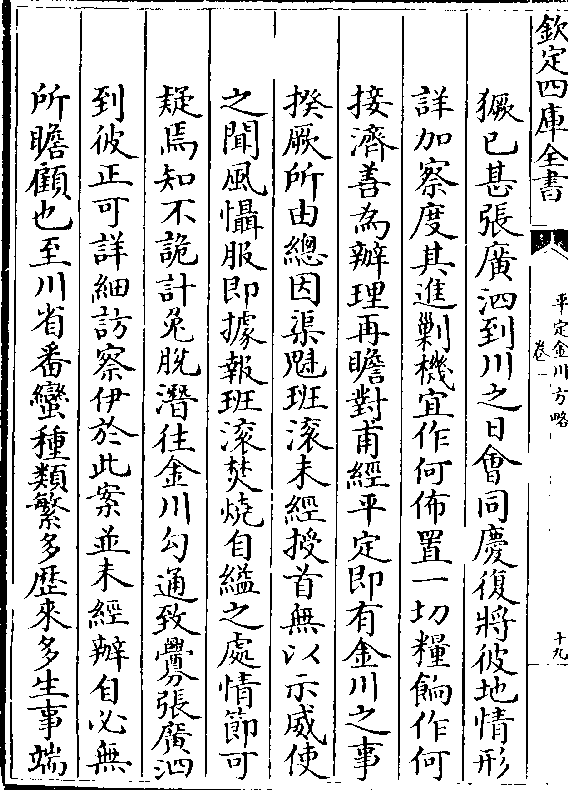 欽定四庫全書
平定金川方略
卷一
十九
獗已甚張廣泗到川之日會同慶復將彼地情形
詳加察度其進剿機宜作何佈置一切糧餉作何
接濟善為辦理再瞻對甫經平定即有金川之事
揆厥所由總因渠魁班滚未經授首無以示威使
之聞風懾服即據報班滚焚燒自縊之處情節可
疑焉知不詭計兔脫潛往金川勾通致釁張廣泗
到彼正可詳細訪察伊於此案並未經辦自必無
所瞻顧也至川省番蠻種類繁多歷來多生事端